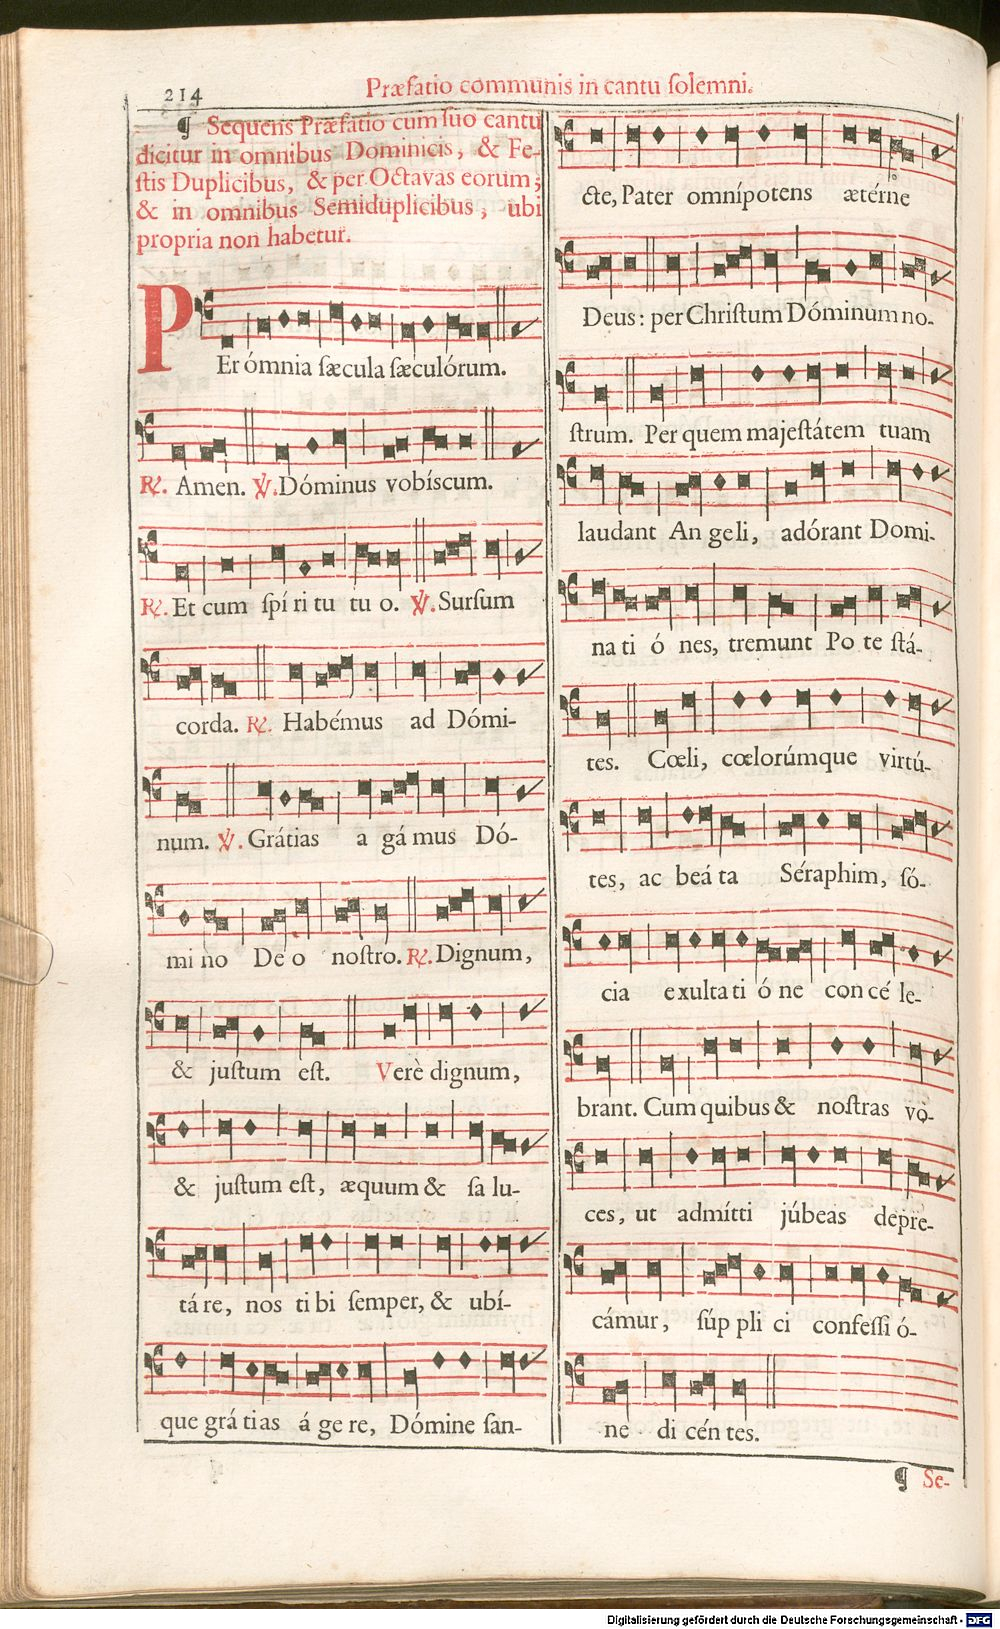 214
Præfatio communis in cantu ſolemni.
¶ Sequens Præfatio cum ſuo cantu
dicitur in omnibus Dominicis, & Fe-
ſtis Duplicibus, & per Octavas eorum;
& in omnibus Semiduplicibus, ubi
propria non habetur.
PEr ómnia ſæcula ſæculórum.
℟. Amen. ℣. Dóminus vobíscum.
℟. Et cum ſpí ri tu tu o. ℣. Surſum
corda. ℟. Habémus ad Dómi-
num. ℣. Grátias a gá mus Dó-
mi no De o noſtro. ℟. Dignum,
& juſtum eſt. Verè dignum,
& juſtum eſt, æquum & ſa lu-
tá re, nos ti bi ſemper, & ubí-
que grá tias á ge re, Dómine ſan-
cte, Pater omnípotens ætérne
Deus: per Chriſtum Dóminum no-
ſtrum. Per quem majeſtátem tuam
laudant An ge li, adórant Domi-
na ti ó nes, tremunt Po te ſtá-
tes. Cœli, cœlorúmque virtú-
tes, ac beá ta Séraphim, ſó-
cia exulta ti ó ne con cé le-
brant. Cum quibus & noſtras vo-
ces, ut admítti júbeas depre-
cámur, ſúp pli ci confeſſi ó-
ne di cén tes.
¶ Se-
Digitalisierung gefördert durch die Deutsche Forschungsgemeinschaft - DFG